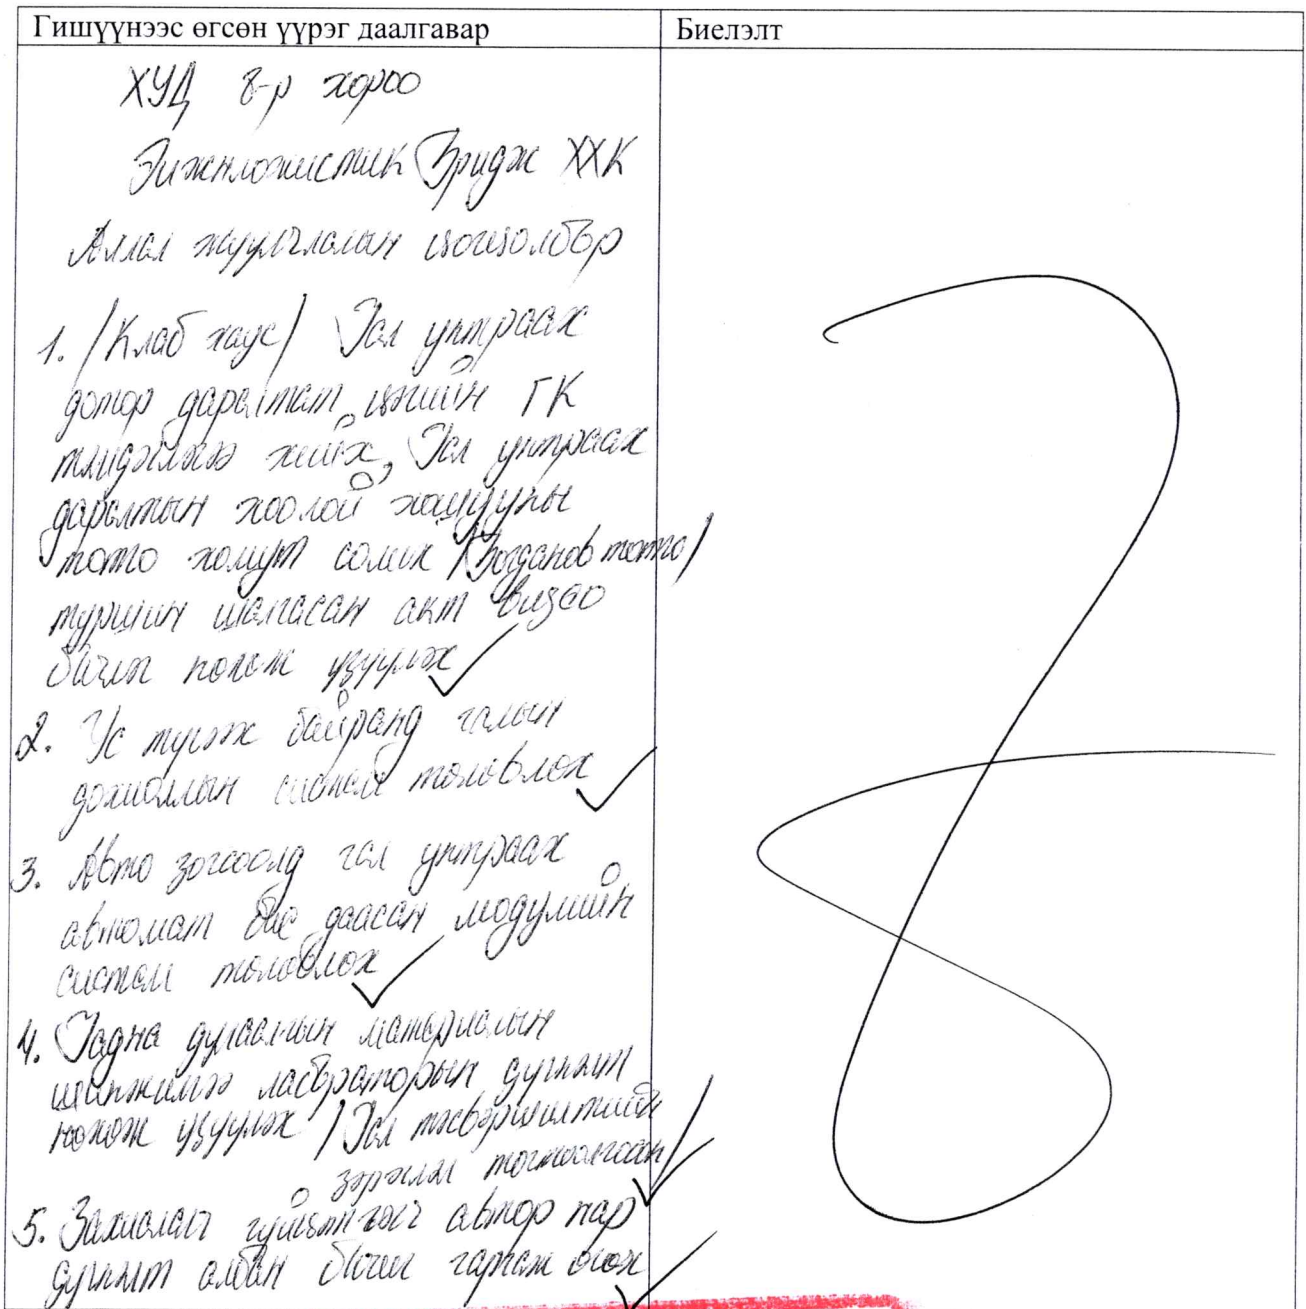 Гишүүнээс өгсөн үүрэг даалгавар
Биелэлт
ХУД 8-р хороо
Бридж ХХК
Аялал жуулчлалын цогцолбор
1. /Клаб хаус/ Гал унтраах
дотор даралтат цэгийн ГК
хийх, Гал унтраах
даралтын хоолой
хомут солих /Богданов
туршин шалгасан акт видео
бичиг нөхөж үзүүлэх
2. Ус түгээх байранд галын
дохиоллын систем төлөвлөх
3. Авто зогсоолд гал унтраах
автомат бие даасан модулийн
систем төлөвлөх
4. Гадна дулаалгын материалын
шинжилгээ лабораторын дүгнэлт
нөхөж үзүүлэх /Гал тэсвэршилтийн
зэрэглэл тогтоолгосон/
5. Захиалагч гүйцэтгэгч автор нар
дүгнэлт албан бичиг гаргаж өгөх